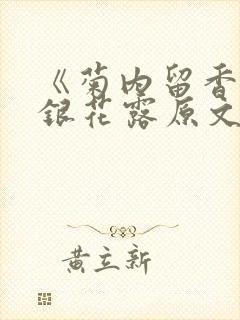 《菊内留香
銀花露原文
黄立新